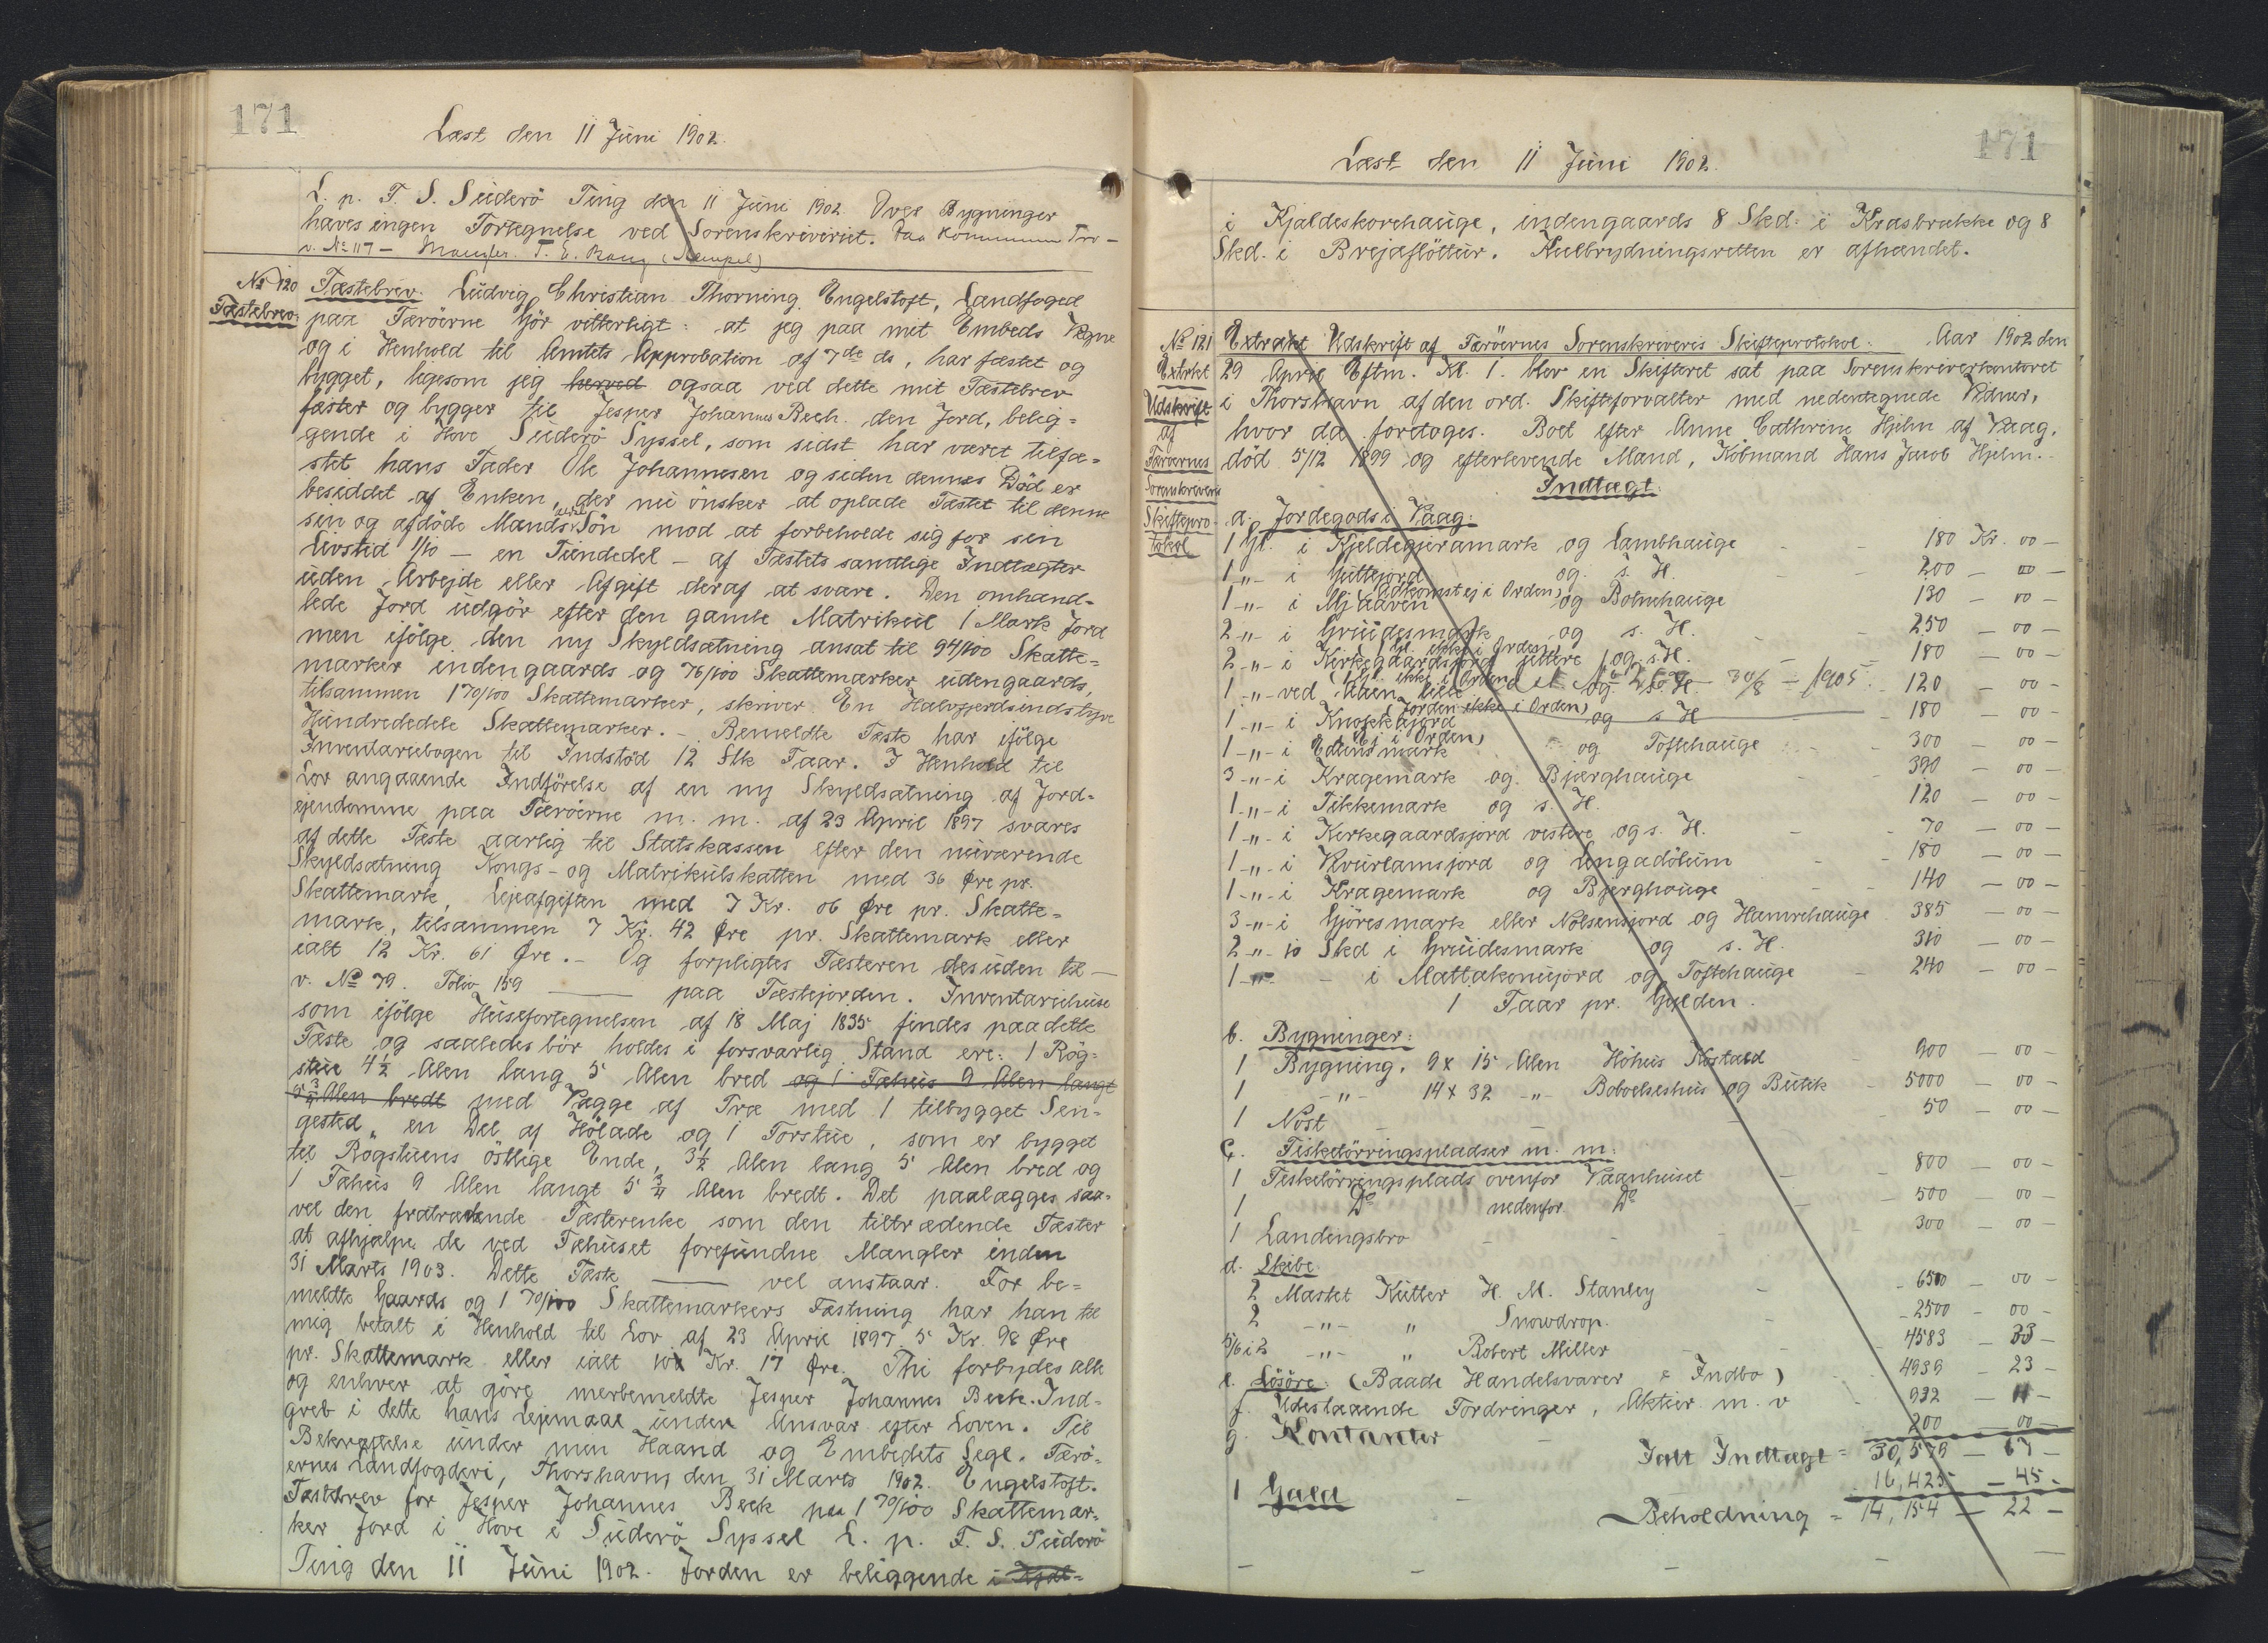 171
Læst den 11 Juni 1902.
L. p. F. S. Suderö Ting den 11 Juni 1902. Over Bygninger
haves ingen Fortegnelse ved Sorenskriveriet. Paa Kommunen Tvo-
v. No 117 -
No 120
Fæstebrev.
Fæstebrev. Ludvig Christian Thorning Engelstoft, Landfoged
paa Færöerne Gör vitterligt: at jeg paa mit Embeds Vegne
og i Henhold til Amtets Approbation af 7de ds, har fæstet og
bygget, ligesom jeg herved ogsaa ved dette mit Fæstebrev
fæster og bygger til Jesper Johannes Beck. den Jord, belig=
gende i Hove Suderö Syssel, som sidst har været tilfæ=
stet hans Fader Ole Johannesen og siden dennes Död er
besiddet af Enken, der nu önsker at oplade Fæstet til denne
sin og afdöde Mands Sön mod at forbeholde sig for sin
Livstid 1/10 - en Tiendedel - af Fæstets samtlige Indtægter
uden Arbejde eller Afgift deraf at svare. Den omhand=
lede Jord udgör efter den gamle Matrikul 1 Mark Jord
men ifölge den ny Skyldsætning ansat til 94/100 Skatte=
marker indengaards og 76/100 Skattemarker udengaards,
tilsammen 1 70/100 Skattemarker, skriver En Halvfjerdsindstyve
Hundrededele Skattemarker. - Bemeldte Fæste har ifölge
Inventariebogen til Indstöd 12 Stk Faar. I Henhold til
Lov angaaende Indförelse af en ny Skyldsætning af Jord=
ejendomme paa Færöerne m. m. af 23 April 1897 svares
af dette Fæste aarlig til Statskassen efter den nuværende
Skyldsætning Kongs- og Matrikulskatten med 36 Øre pr.
Skattemark, Lejeafgiften med 7 Kr. 06 Øre pr. Skatte=
mark, tilsammen 7 Kr. 42 Øre pr. Skattemark eller
ialt 12 Kr. 61 Øre. - Og forpligtes Fæsteren desuden til -
v. No 79. Folio 159 paa Fæstejorden. Inventariehuse
som ifölge Husefortegnelsen af 18 Maj 1835 findes paa dette
Fæste og saaledes bör holdes i forsvarlig Stand ere: 1 Rög=
stue 4 1/2 Alen lang 5 Alen bred og 1 Fæhus 9 Alen langt
5 3/4 Alen bredt med Vægge af Træ med 1 tilbygget Sen=
gested, en Del af Hölade og 1 Forstue, som er bygget
til Rögstuens östlige Ende, 3 1/2 Alen lang 5 Alen bred og
1 Fæhus 9 Alen langt 5 3/4 Alen bredt. Det paalægges saa=
vel den fratrædende Fæsterenke som den tiltrædende Fæster
at afhjælpe de ved Fæhuset forefundne Mangler inden
31 Marts 1903. Dette Fæste vel anstaar. For be=
meldte Gaards og 1 70/100 Skattemarkers Fæstning har han til
mig betalt i Henhold til Lov af 23 April 1897 5 Kr. 98 Øre
pr. Skattemark eller ialt 10 Kr. 17 Øre. Thi forbydes alle
og enhver at göre merbemeldte Jesper Johannes Beck. Ind=
greb i dette hans Lejemaal under Ansvar efter Loven. Til
Bekræftelse under min Haand og Embedets Segl. Færö=
ernes Landfogderi, Thorshavn, den 31 Marts 1902. Engelstoft.
Fæstebrev for Jesper Johannes Beck paa 1 70/100 Skattemar=
ker Jord i Hove i Suderö Syssel L. p. F. S. Suderö
Ting den 11 Juni 1902. Jorden er beliggende i
171
Læst den 11 Juni 1902.
i Kjaldeskorehauge, indengaards 8 Skd: i Krosbrække og 8
Skd. i Brejaflöttur. Kulbrydningsretten er afhændet.
No 121
Extrakt
Udskrift
af
Færöernes
Sorenskriveris
Skiftepro-
tokol
Extrakt Udskrift af Færöernes Sorenskriveris Skifteprotokol: Aar 1902 den
29 April Eftm. Kl. 1. blev en Skifteret sat paa Sorenskriverkontoret
i Thorshavn af den ord. Skifteforvalter med nedentegnede Vidner,
hvor da fordoges. Boet efter Anne Cathrine Hjelm af Vaag,
död 5/12 1899 og efterlevende Mand, Köbmand Hans Jacob Hjelm.
Indtægt.
a. Jordegods i Vaag:
1 Gl. i Kjeldegjeramark og Lambhauge - 180 Kr. 00 -
1 -"- i Guttejord og s. H. - 200 - 00 -
(Adkomst ej i Orden)
1 -"- i Mjaaven og Botnehauge 130 - 00 -
2 -"- i Gruidesmark og s. H. - 250 - 00 -
(1 Gl. ikke i Orden)
2 -"- i Kirkegaardsjord yttere og s. H. - 180 - 00 -
(1 Gl. ikke i Orden)
1 -"- ved Aaen lille og s. H. 30/8 - 1905. 120 - 00 -
(Jorden ikke i Orden)
1 -"- i Knokkajord og s H - 180 - 00 -
(Ej i Orden)
1 -"- i Edunsmark og Toftehauge 300 - 00 -
3 -"- i Kragemark og Bjærghauge - 390 - 00 -
1 -"- i Fikkemark og s. H. 120 - 00 -
1 -"- i Kirkegaardsjord vestere og s. H. - 70 - 00 -
1 -"- i Kvurlamsjord og Engadölum - 180 - 00 -
1 -"- i Kragemark og Bjerghauge - 140 - 00 -
3 -"- i Gjöresmark eller Nolsensjord og Hamrehauge 385 - 00 -
2 -"- 10 Skd i Gruidesmark og s. H. 310 - 00 -
1 -"- - i Mattakonujord og Toftehauge - 240 - 00 -
1 Faar pr. Gylden.
b. Bygninger:
1 Bygning, 9 x 15 Alen Höhus Kostald - 900 - 00 -
1 -"- 14 x 32 -"- Beboelseshus og Butik - 5000 - 00 -
1 Nost - - - 50 - 00 -
c. Fisketörringspladser m. m.
1 Fisketörringsplads ovenfor Vaanhuset - 800 - 00 -
1 Do nedenfor Do - 500 - 00 -
1 Landingsbro - - - 300 - 00 -
d. Skibe.
2 Mastet Kutter H. M. Stanley - 6500 - 00 -
2 -"- " Snowdrop. - 2500 - 00 -
5/6 i 2 -"- " Robert Miller - 4583 - 33 -
e. Lösöre: (Baade Handelsvarer & Indbo) - 4939 - 23 -
f. Udestaaende Fordringer, Aktier m. v 932 11 -
g. Kontanter - 200 00 -
Ialt Indtægt = 30,579 - 67 -
1 Gæld - 16,425 - 45 -
Beholdning = 14,154 - 22 -